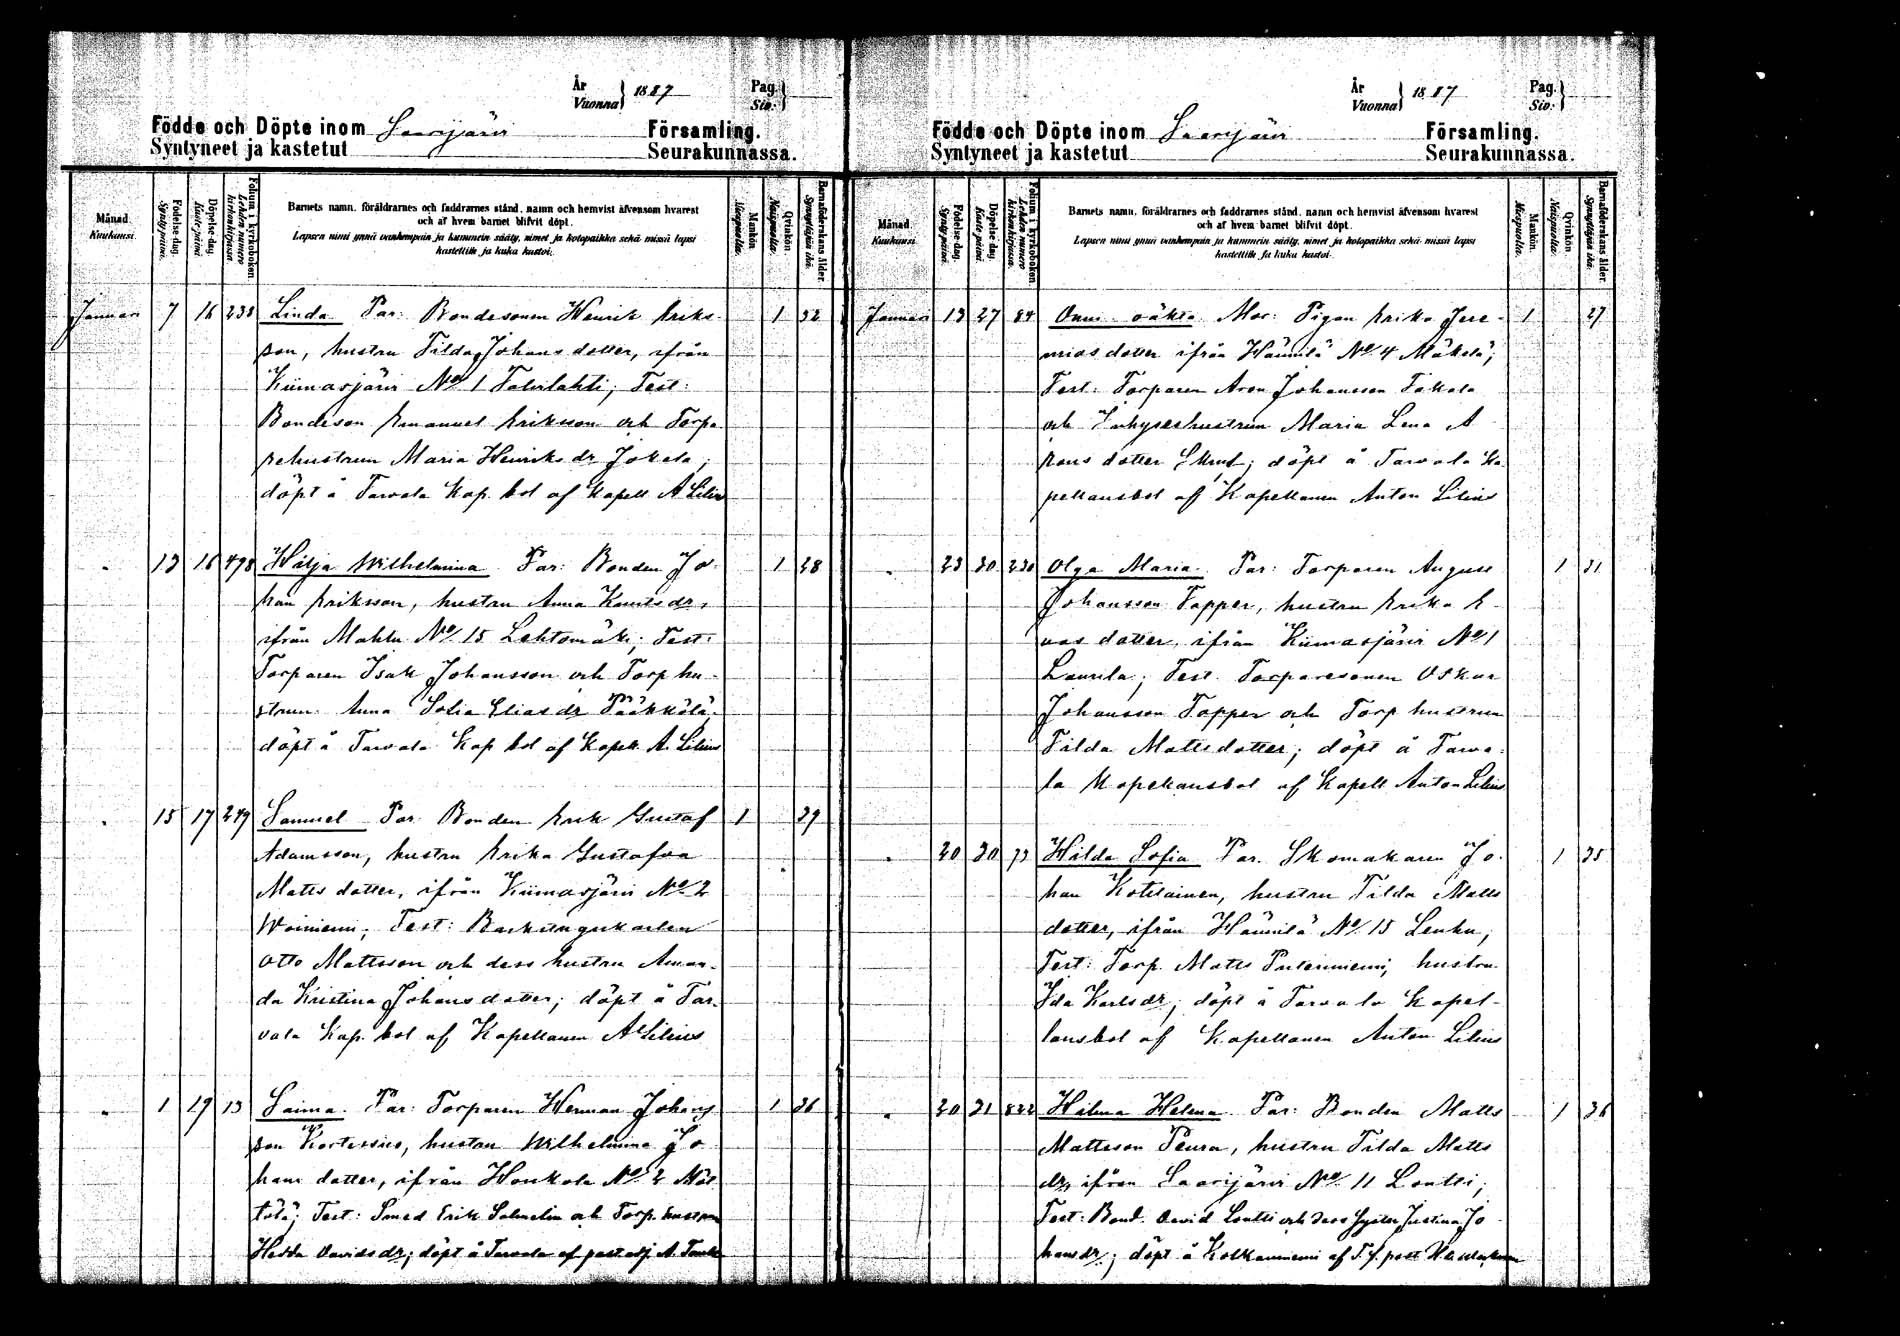 År
Vuonna } 1887
Pag.
Siv. }
Födde och Döpte inom Saarijärvi Församling.
Syntyneet ja kastetut Seurakunnassa.
Månad.
Kuukausi.
Födelse-dag.
Synty-päivä.
Döpelse-dag.
Kaste-päivä.
Folium i kyrkoboken.
Lehden numero kirkonkirjassa.
Barnets namn, föräldrarnes och faddrarnes stånd, namn och hemvist äfvensom hvarest
och af hvem barnet blifvit döpt.
Lapsen nimi ynnä vanhempain ja kummein sääty, nimet ja kotopaikka sekä missä lapsi
kastettiin ja kuka kastoi.
Mankön.
Miespuolta.
Qvinkön.
Naispuolta.
Barnaföderskans ålder.
Synnyttäjän ikä.
Januari 7 16 238 Linda Par: Bondesonen Henrik Eriks- 1 32
son, hustru Tilda Johansdotter, ifrån
Kiimasjärvi No 1 Talvilahti; Test:
Bondeson Emanuel Eriksson och Torpa
rehustrun Maria Henriksdr Jokela;
döpt å Tarvala Kap. bol af Kapell A Lilius
" 13 16 498 Hilja Wilhelmina Par: Bonden Jo- 1 28
han Eriksson, hustru Anna dr,
ifrån Mahlu No 15 Lehtomäki; Test:
Torparen Isak Johansson och Torp hu-
strun Anna Sofia Eliasdr Pääkkölä
döpt å Tarvala Kap bol af Kapell A. Lilius
" 15 17 249 Samuel Par Bonden Erik Gustaf 1 29
Adamsson, hustru Erika Gustafva
Mattsdotter, ifrån Kiimasjärvi No 2
Woiniemi; Test:
Otto Mattsson och dess hustru Aman-
da Kristina Johansdotter; döpt å Tar-
vala Kap. bol af Kapellanen A Lilius
" 1 19 13 Saima Par: Torparen Herman Johans 1 36
son, hustru Wilhelmina Jo
hansdotter, ifrån Honkola No 2
Test: Smed Erik och Torp. hustrun
Hedda Davidsdr; döpt å Tarvala af past. adj. A.
År
Vuonna } 1887
Pag.
Siv. }
Födde och Döpte inom Saarijärvi Församling.
Syntyneet ja kastetut Seurakunnassa.
Månad.
Kuukausi.
Födelse-dag.
Synty-päivä.
Döpelse-dag.
Kaste-päivä.
Folium i kyrkoboken.
Lehden numero kirkonkirjassa.
Barnets namn, föräldrarnes och faddrarnes stånd, namn och hemvist äfvensom hvarest
och af hvem barnet blifvit döpt.
Lapsen nimi ynnä vanhempain ja kummein sääty, nimet ja kotopaikka sekä missä lapsi
kastettiin ja kuka kastoi.
Mankön.
Miespuolta.
Qvinkön.
Naispuolta.
Barnaföderskans ålder.
Synnyttäjän ikä.
Januari 13 27 84 Onni oäkta Mor: Pigan Erika Jere- 1 27
miasdotter ifrån Hännilä No 4 Mäkelä;
Test: Torparen Aron Johansson Takala
och Inhyseshustrun Maria Lena A
rons dotter; döpt å Tarvala Ka
pellansbol af Kapellanen Anton Lilius
" 23 30 230 Olga Maria Par: Torparen August 1 31
Johansson Topper, hustru Erika E
vas dotter, ifrån Kiimasjärvi No 1
Laurila; Test. Torparesonen Oskar
Johansson Topper och Torp hustrun
Tilda Mattsdotter; döpt å Tarva-
la Kapellansbol af Kapell Anton Lilius
" 20 30 73 Hilda Sofia Par. Skomakaren Jo- 1 35
han Kotilainen, hustru Tilda Matts
dotter, ifrån Hännilä No 15 Leuhu;
Test: Torp. Matts, hustru
Ida Karlsdr; döpt å Tarvala Kapel-
lansbol af Kapellanen Anton Lilius
" 20 31 822 Hilma Helena Par: Bonden Matts 1 36
Mattsson Peura, hustru Tilda Matts
dr, ifrån Saarijärvi No 11 Loutti;
Test: Bond. David Loutti och dess syster Justina Jo
hansdr; döpt å Kolkanniemi af T. f. past